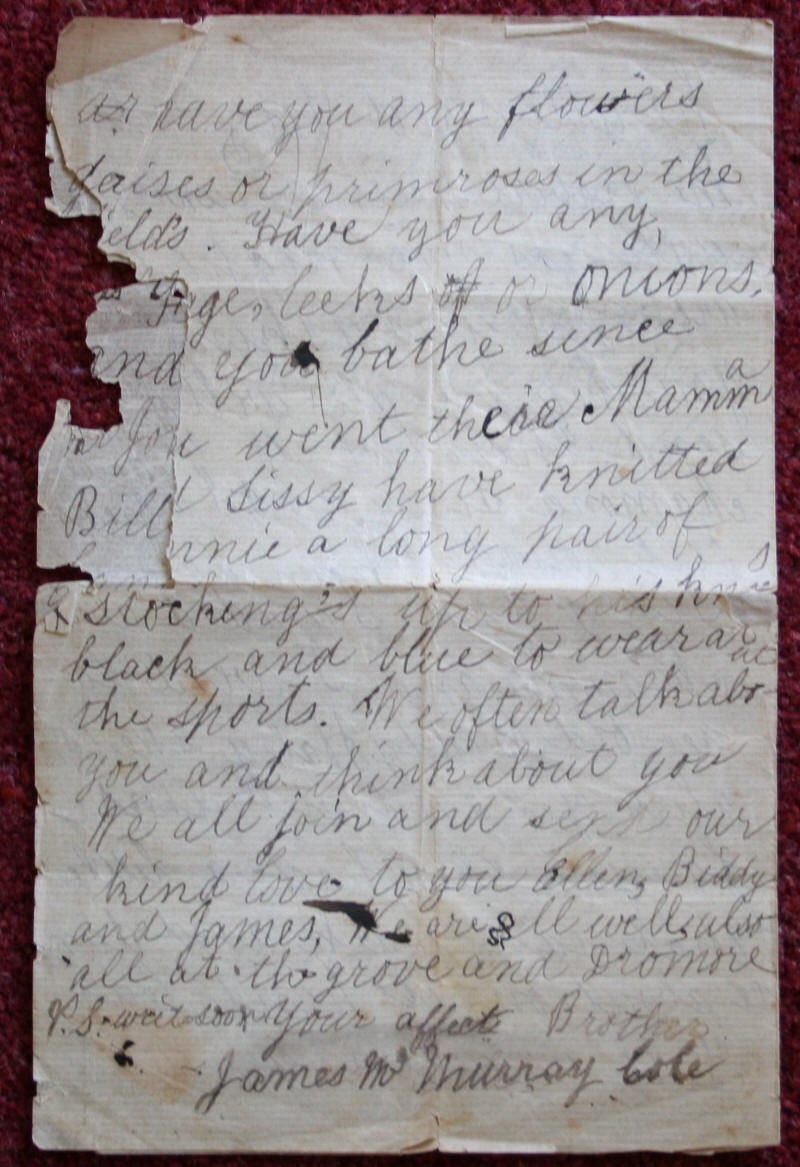 have you any flowers
daises or primroses in the
elds. Have you any,
leeks or onions,
and you bathe since
you went there Mamma
Bill Sissy have knitted
nnie a long pair of
stocking's up to his kn
black and blue to wear at
the sports. We often talk abo
you and think about you
We all join and send our
kind love to you Ellen, Biddy
and James, We are all well, also
all at the grove and Dromore
P.S. writ soon Your affect Brother
James Mc Murray Cole